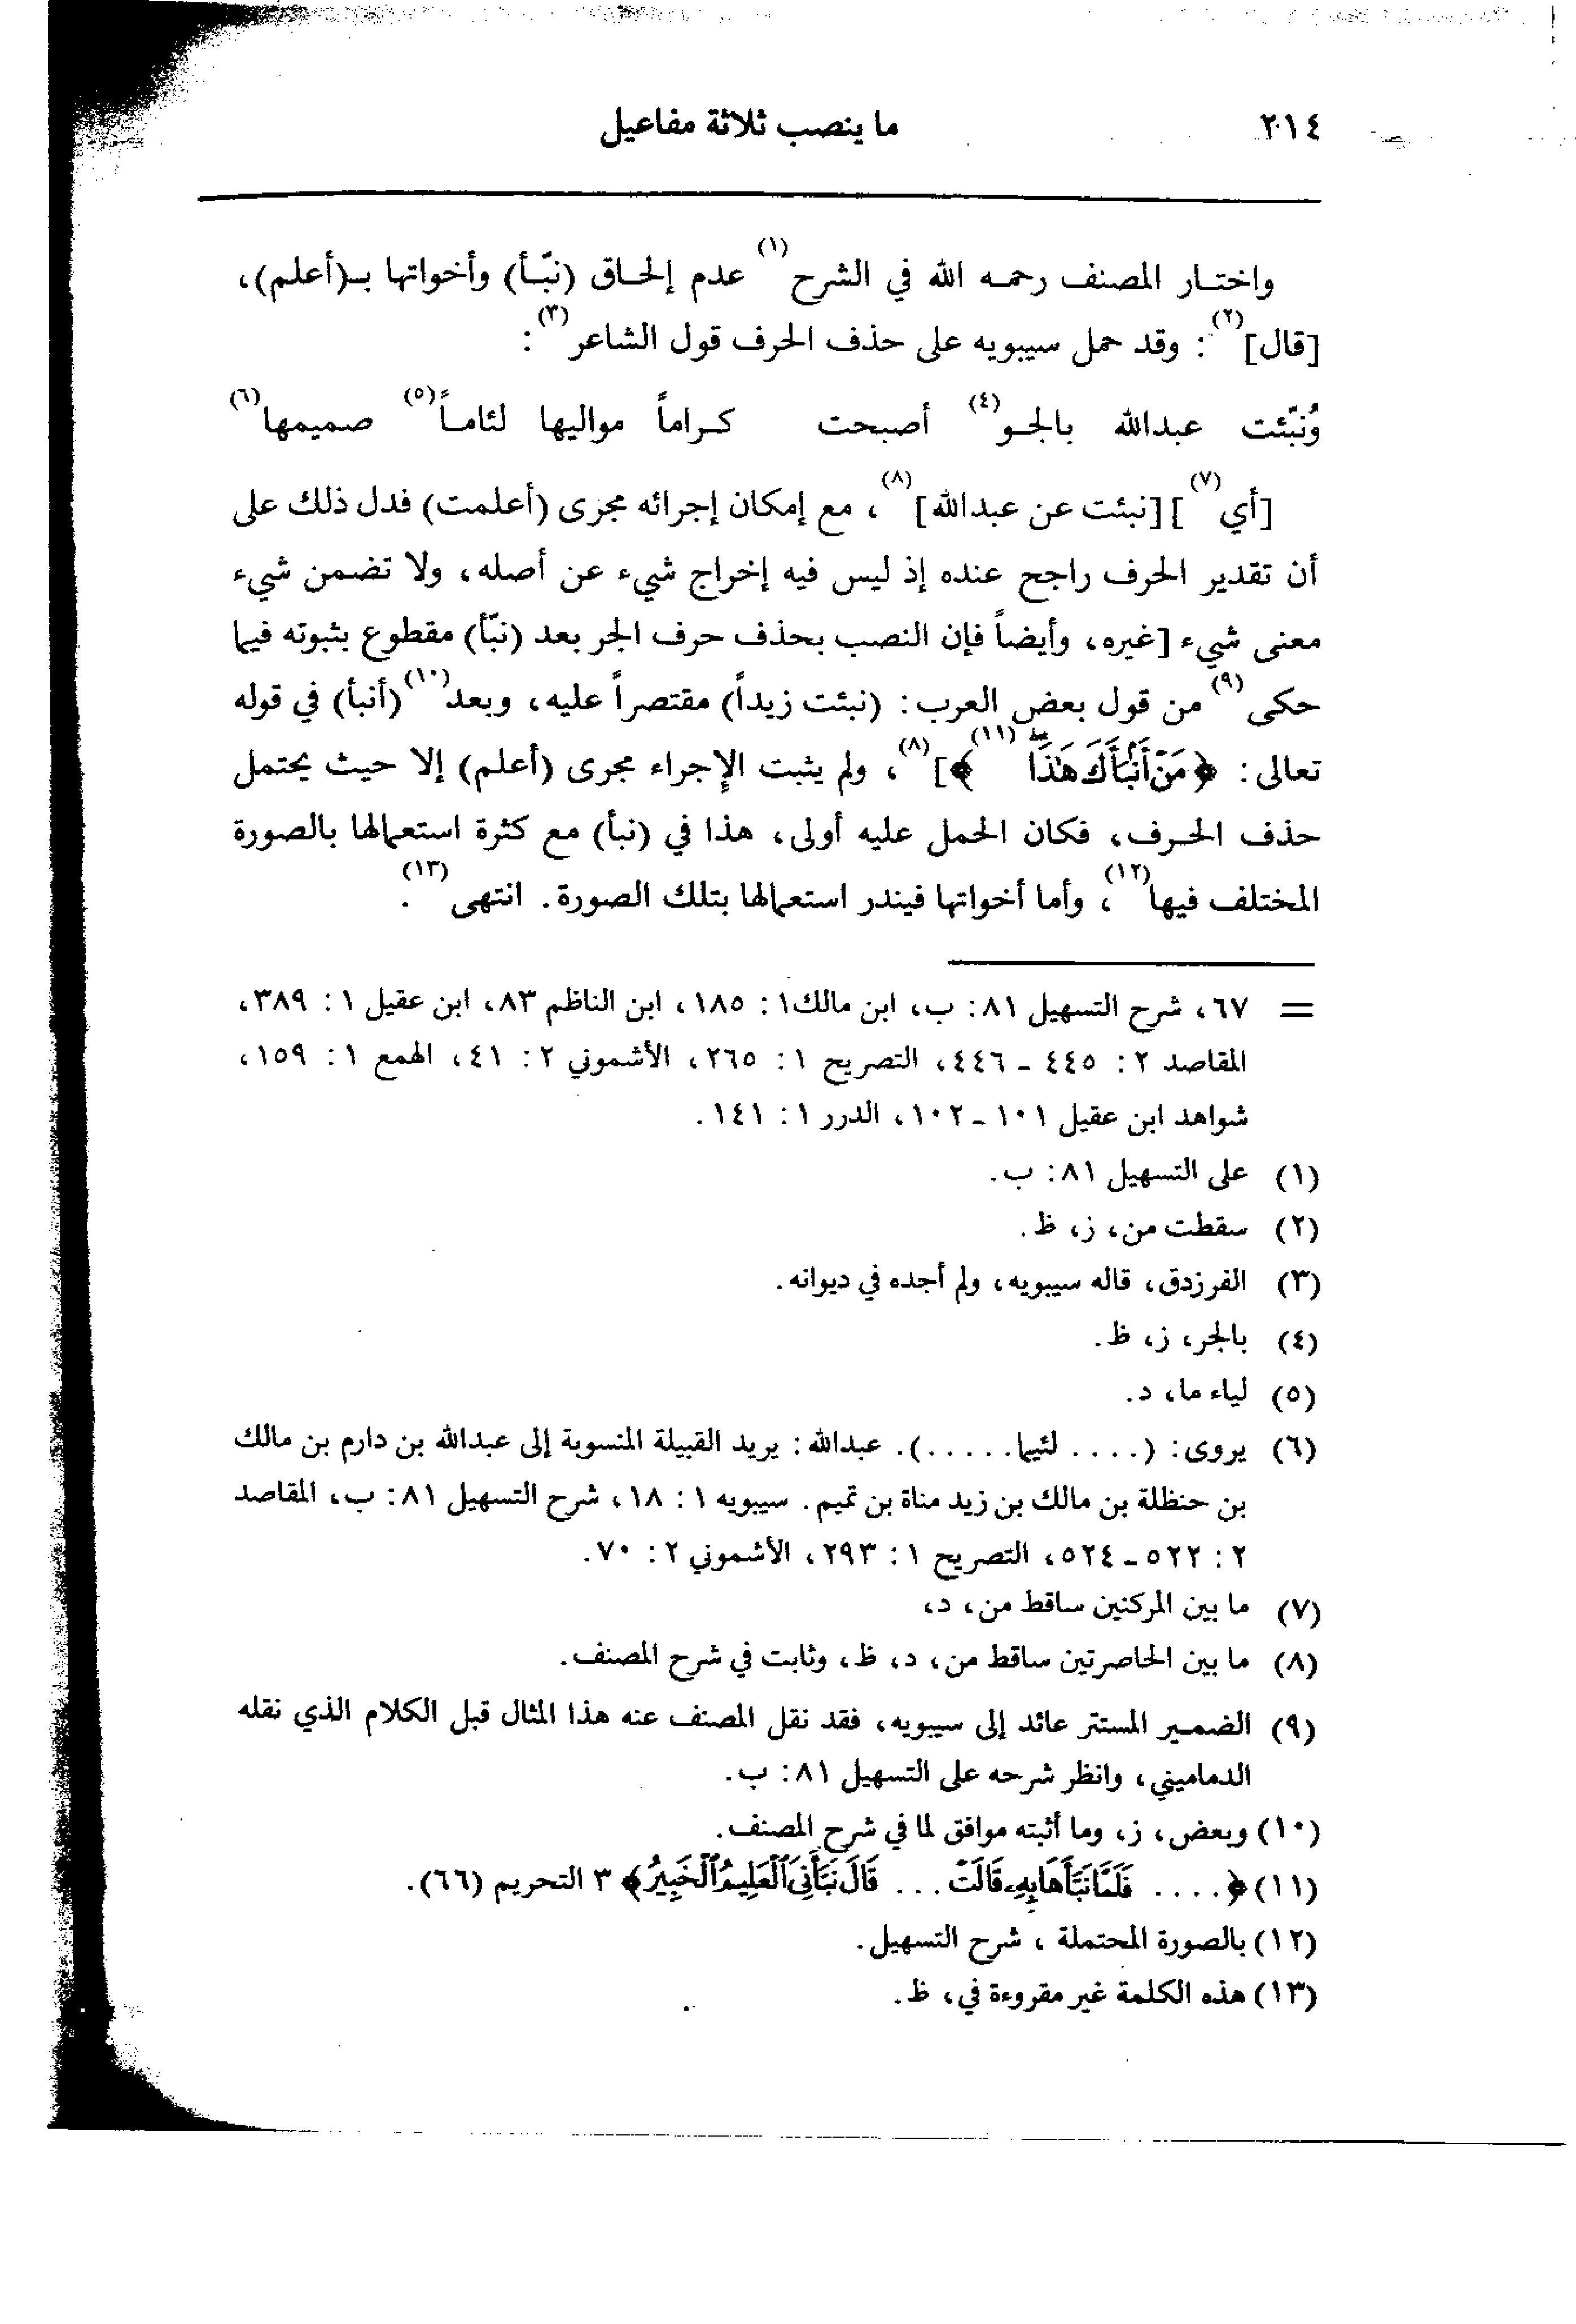 ٢١٤ ما ينصب ثلاثة مفاعيل
واختار المصنف رحمه الله في الشرح(١) عدم إلحاق (نبّأ) وأخواتها بـ(أعلم)،
[قال](٢): وقد حمل سيبويه على حذف الحرف قول الشاعر(٣):
ونُبّئت عبدالله بالجو(٤) أصبحت كراماً مواليها لئاماً(٥) صميمها(٦)
[أي(٧)] [نبئت عن عبدالله](٨)، مع إمكان إجرائه مجرى (أعلمت) فدل ذلك على
أن تقدير الحرف راجح عنده إذ ليس فيه إخراج شيء عن أصله، ولا تضمن شيء
معنى شيء [غيره، وأيضاً فإن النصب بحذف حرف الجر بعد (نبّأ) مقطوع بثبوته فيما
حكى(٩) من قول بعض العرب: (نبئت زيداً) مقتصراً عليه، وبعد(١٠) (أنبأ) في قوله
تعالى: ﴿مَنْ أَنۢبَأَكَ هَٰذَاۖ(١١)﴾](٨)، ولم يثبت الإجراء مجرى (أعلم) إلا حيث يحتمل
حذف الحرف، فكان الحمل عليه أولى، هذا في (نبأ) مع كثرة استعمالها بالصورة
المختلف فيها(١٢)، وأما أخواتها فيندر استعمالها بتلك الصورة. انتهى(١٣).
= ٦٧، شرح التسهيل ٨١: ب، ابن مالك١: ١٨٥، ابن الناظم ٨٣، ابن عقيل ١: ٣٨٩،
المقاصد ٢: ٤٤٥ ـ ٤٤٦، التصريح ١: ٢٦٥، الأشموني ٢: ٤١، الهمع ١: ١٥٩،
شواهد ابن عقيل ١٠١ ـ ١٠٢، الدرر ١: ١٤١.
(١) على التسهيل ٨١: ب.
(٢) سقطت من، ز، ظ.
(٣) الفرزدق، قاله سيبويه، ولم أجده في ديوانه.
(٤) بالجر، ز، ظ.
(٥) لياء ما، د.
(٦) يروى: (.... لئيما.....). عبدالله: يريد القبيلة المنسوبة إلى عبدالله بن دارم بن مالك
بن حنظلة بن مالك بن زيد مناة بن تميم. سيبويه ١: ١٨، شرح التسهيل ٨١: ب، المقاصد
٢: ٥٢٢ ـ ٥٢٤، التصريح ١: ٢٩٣، الأشموني ٢: ٧٠.
(٧) ما بين المركنين ساقط من، د،
(٨) ما بين الحاصرتين ساقط من، د، ظ، وثابت في شرح المصنف.
(٩) الضمير المستتر عائد إلى سيبويه، فقد نقل المصنف عنه هذا المثال قبل الكلام الذي نقله
الدماميني، وانظر شرحه على التسهيل ٨١: ب.
(١٠) وبعض، ز، وما أثبته موافق لما في شرح المصنف.
(١١) ﴿.... فَلَمَّا نَبَّأَهَا بِهِۦ قَالَتْ ... قَالَ نَبَّأَنِىَ ٱلْعَلِيمُ ٱلْخَبِيرُ﴾ ٣ التحريم (٦٦).
(١٢) بالصورة المحتملة، شرح التسهيل.
(١٣) هذه الكلمة غير مقروءة في، ظ.